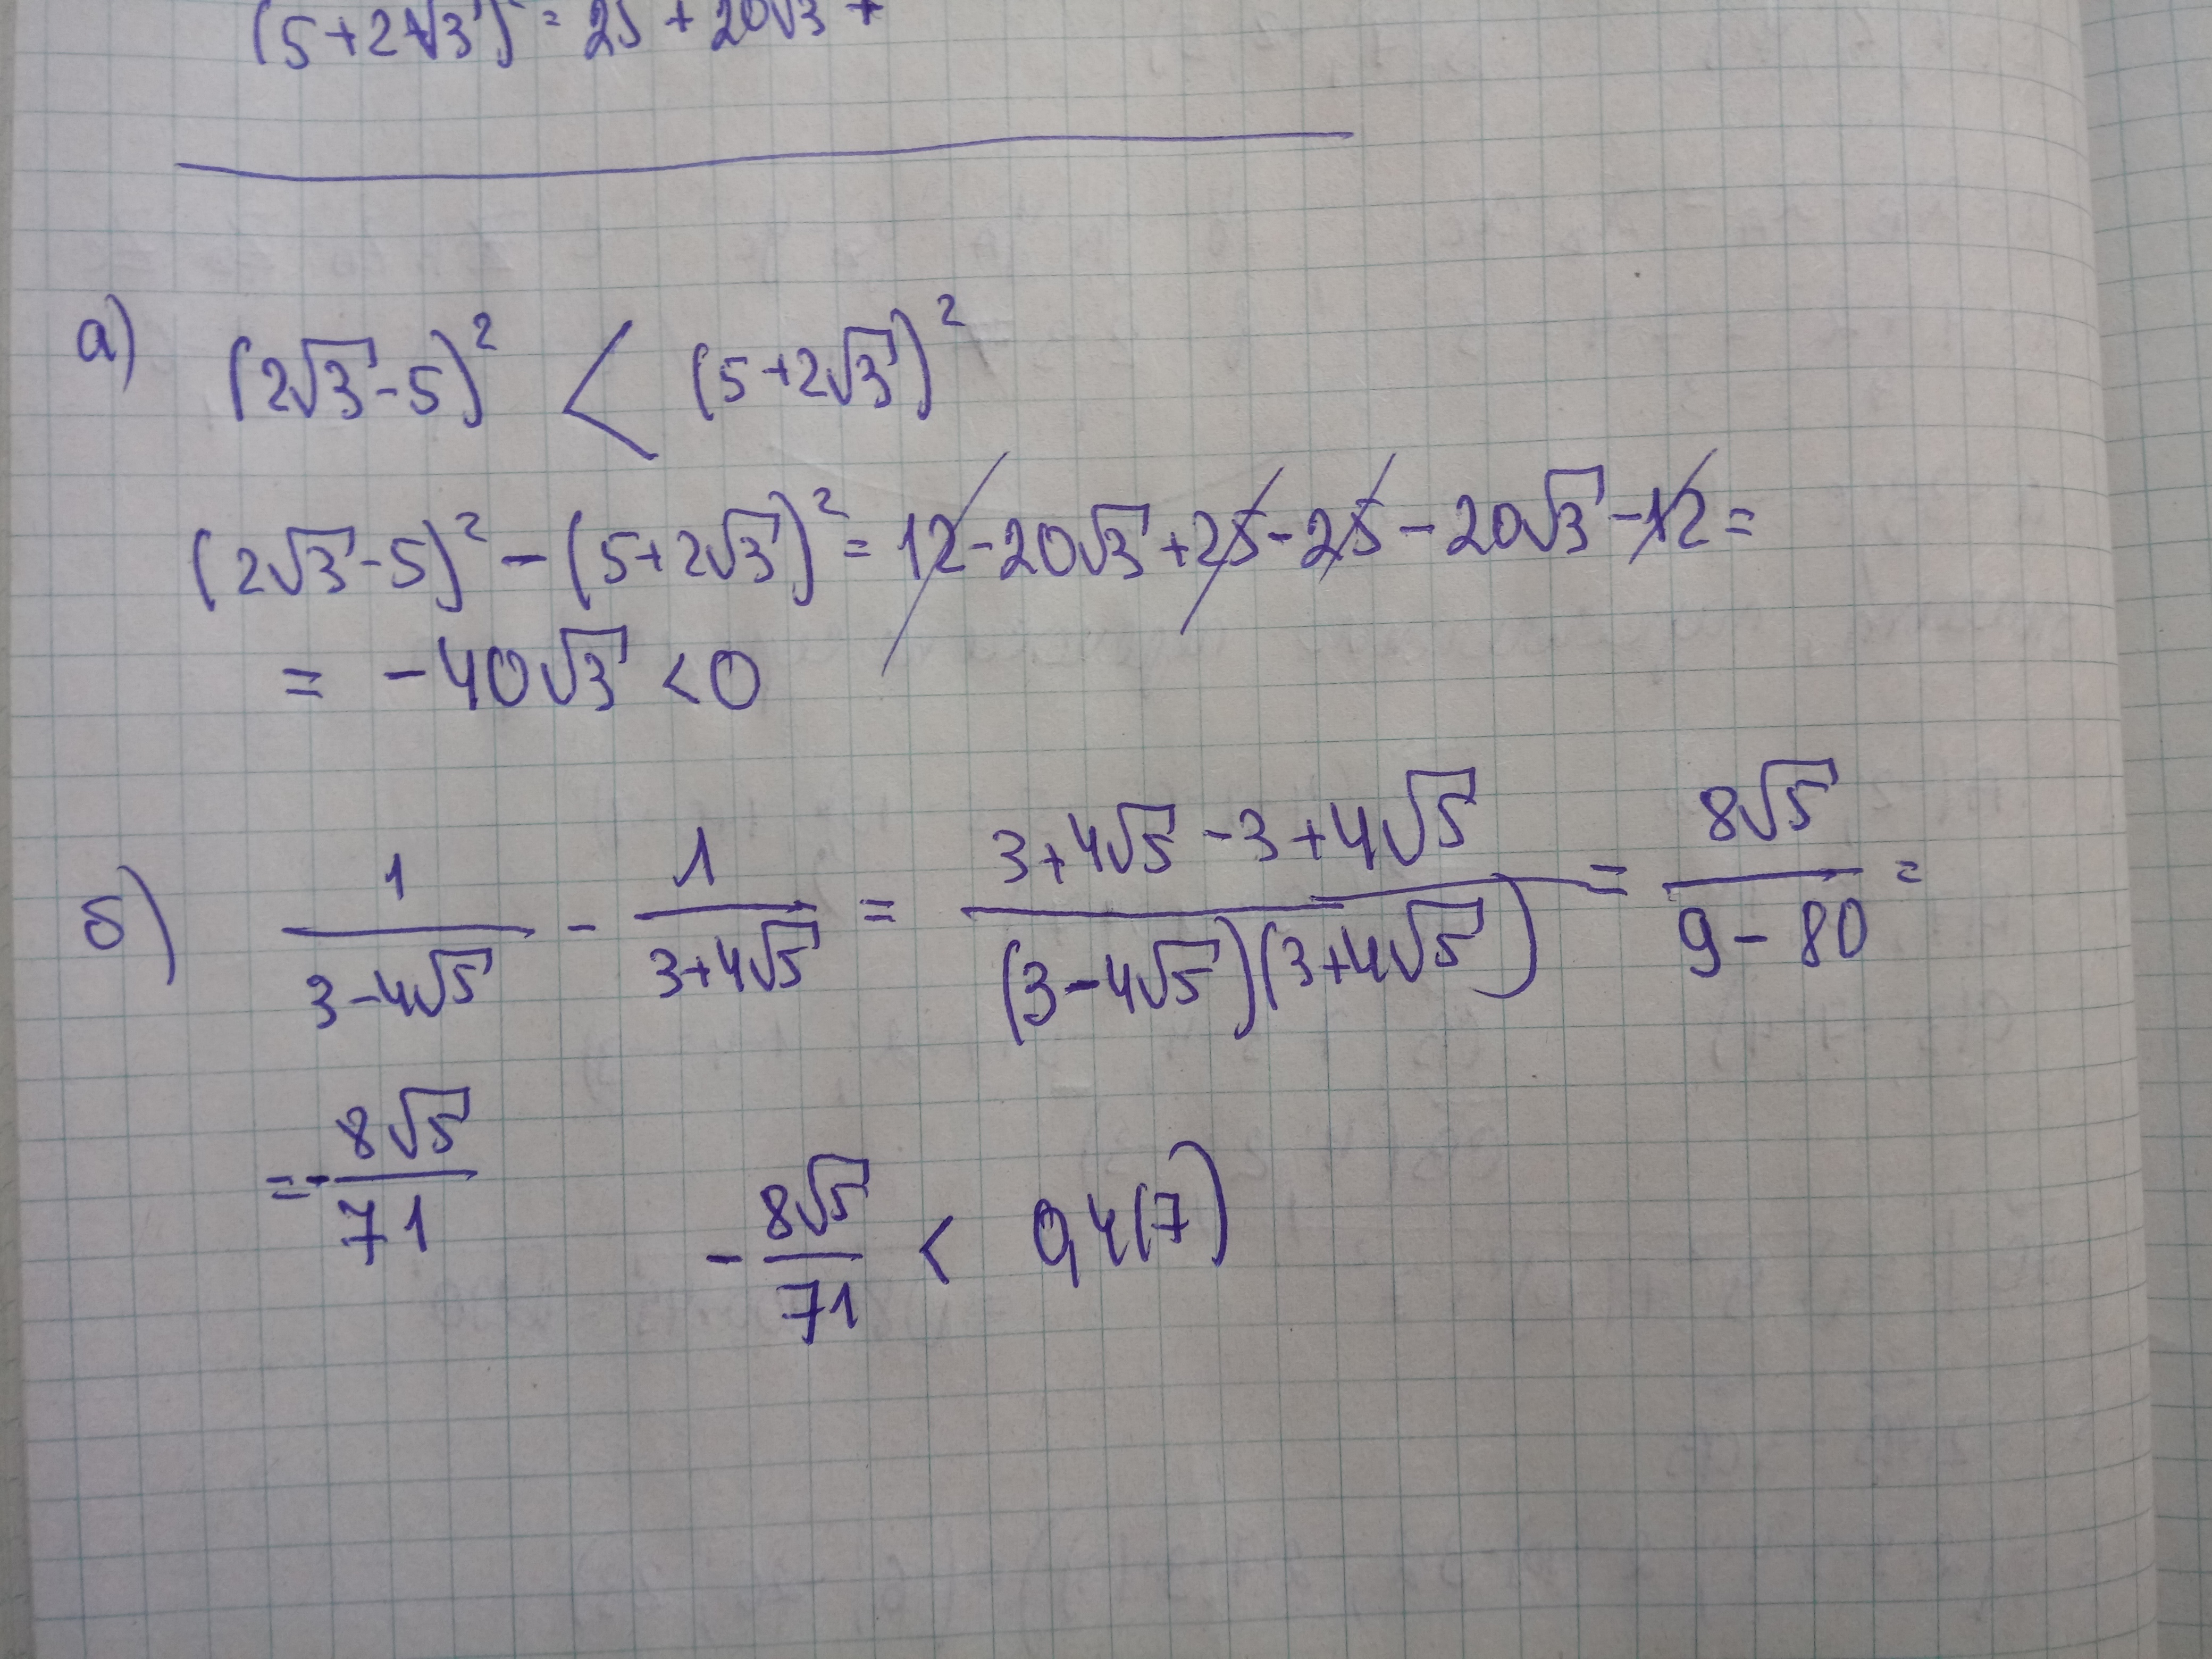 (5+2√3)² = 25 + 20√3 +
а) (2√3-5)² < (5+2√3)²
(2√3-5)² - (5+2√3)² = 12-20√3+25-25-20√3-12=
= -40√3 <0
б) 1/(3-4√5) - 1/(3+4√5) = (3+4√5-3+4√5)/((3-4√5)(3+4√5)) = 8√5/(9-80) =
=-8√5/71   -8√5/71 < 0,4(7)